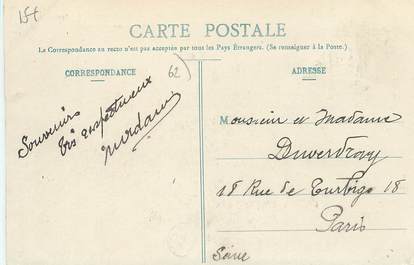 15f
CARTE POSTALE
La Correspondance au recto n'est pas acceptée par tous les Pays Étrangers. (Se renseigner à la Poste)
CORRESPONDANCE
62
ADRESSE
Souvenirs
très respectueux
Monsieur et Madame
18 Rue de Turbigo 18
Paris
Seine